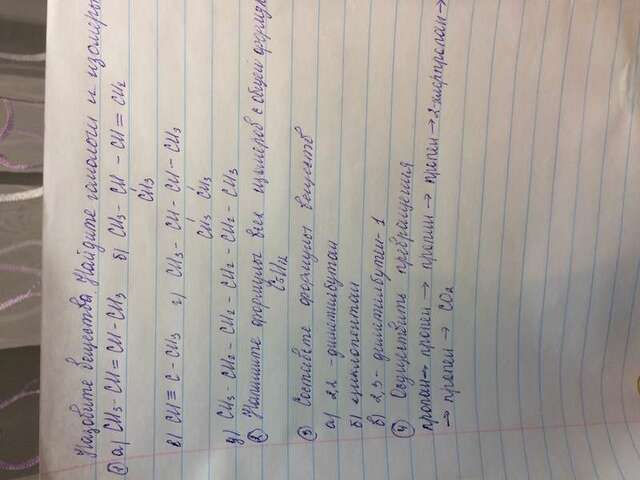 Назовите вещества. Найдите гомологи и изомеры
① а) CH3 - CH = CH - CH3 б) CH3 - CH - CH = CH2
CH3
в) CH ≡ C - CH3 г) CH3 - CH - CH - CH3
CH3 CH3
д) CH3 - CH2 - CH2 - CH2 - CH2 - CH3
② Напишите формулы всех изомеров с общей формул
C5H12
③ Составьте формулы веществ
а) 22 - диметилбутан
б) циклопентан
в) 2,3 - диметилбутен - 1
④ Осуществить превращения
пропан → пропен → пропин → пропен → 2-хлорпропан →
→ пропен → CO2